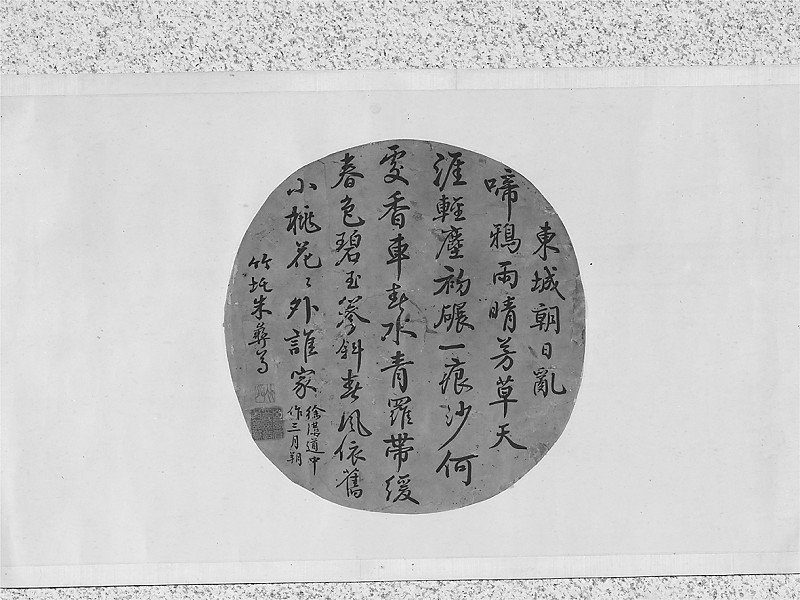 東城朝日亂
啼鴉雨晴芳草天
涯輕塵初碾一痕沙何
處香車春水青羅帶緩
春色碧玉簪斜春風依舊
小桃花〻外誰家
徐溝道中
作三月朔
竹垞朱彝尊